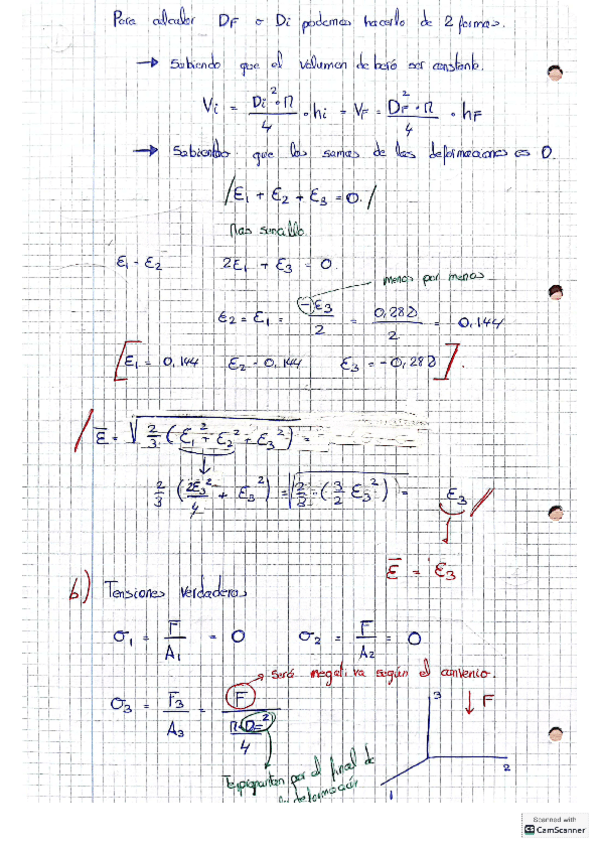 Para calcular DF o Di podemos hacerlo de 2 formas.
→ Sabiendo que el volumen deberá ser constante.
Vi = Di²·π/4 · hi = VF = DF²·π/4 · hF
→ Sabiendo que las sumas de las deformaciones es 0.
/ε1 + ε2 + ε3 = 0./
Mas sencillo
ε1 = ε2 2ε1 + ε3 = 0.
menos por menos
ε2 = ε1 = -ε3/2 = 0,288/2 = 0,144
[ε1 = 0,144 ε2 = 0,144 ε3 = -0,288].
/ε̅ = √(2/3 (ε1² + ε2² + ε3²)) =
2/3 (2ε3²/4 + ε3²) = √(2/3 · (3/2 ε3²)) = ε3/
ε̅ = ε3
b) Tensiones verdaderas
σ1 = F/A1 = 0 σ2 = F/A2 = 0
será negativa según el convenio.
σ3 = F3/A3 = F/(π·DF²/4)
3
F
2
1
por el final de
la deformación
Scanned with
CS CamScanner